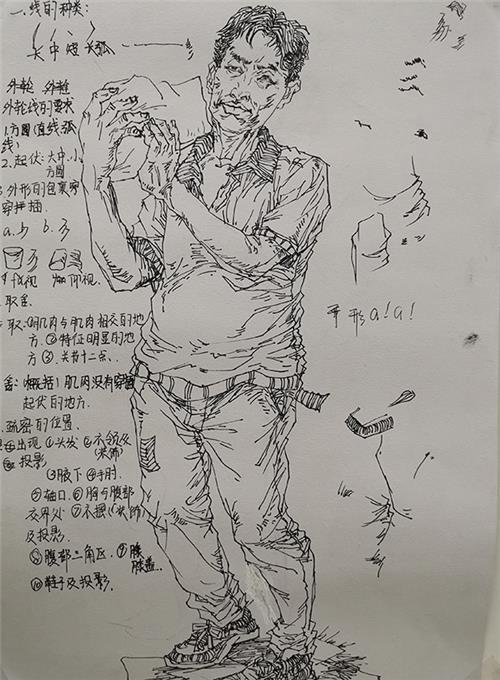 一、线的种类:
大中短长弧
外轮 外轮
外轮线的要求
1.方圆(直线弧线)
2.起伏:大中.小
方圆
外形的包裹穿
穿拼插.
a. b.
俯视 仰视.
取舍.
取:①肌肉与肌肉相交的地
方.②特征明显的地
方③.关节十二点.
舍:(概括)肌肉没有穿插
起伏的地方.
疏密的位置.
出现①头发②衣领及
投影
③腋下④手肘.
⑤袖口.⑥胸与腹部
交界处
及投影.
⑧腹部三角区.⑨膝
膝盖..
⑩鞋子及投影.
平形a!a!